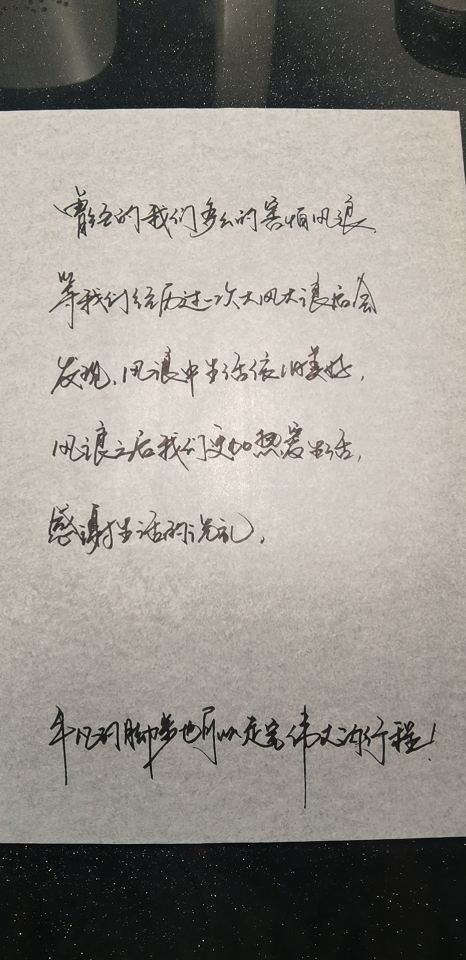 曾经的我们多么的害怕风浪,
等我们经历过一次大风大浪后会
发现,风浪中生活依旧美好,
风浪之后我们更加热爱生活,
感谢生活的洗礼,
平凡的脚步也可以走完伟大的行程!